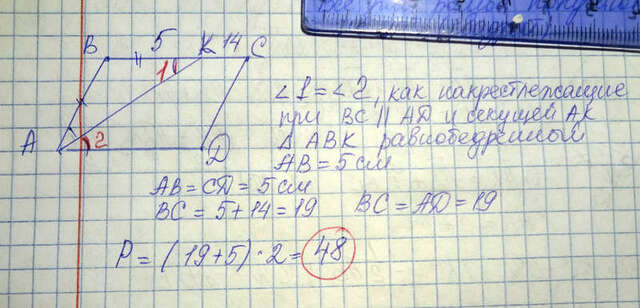 B 5 K 14 C
1
A 2 D
∠1=∠2, как накрестлежащие
при BC || AD и секущей AK
△ ABK равнобедренный
AB = 5 см
AB = CD = 5 см
BC = 5+14 = 19 BC = AD = 19
P = (19+5)·2 = 48